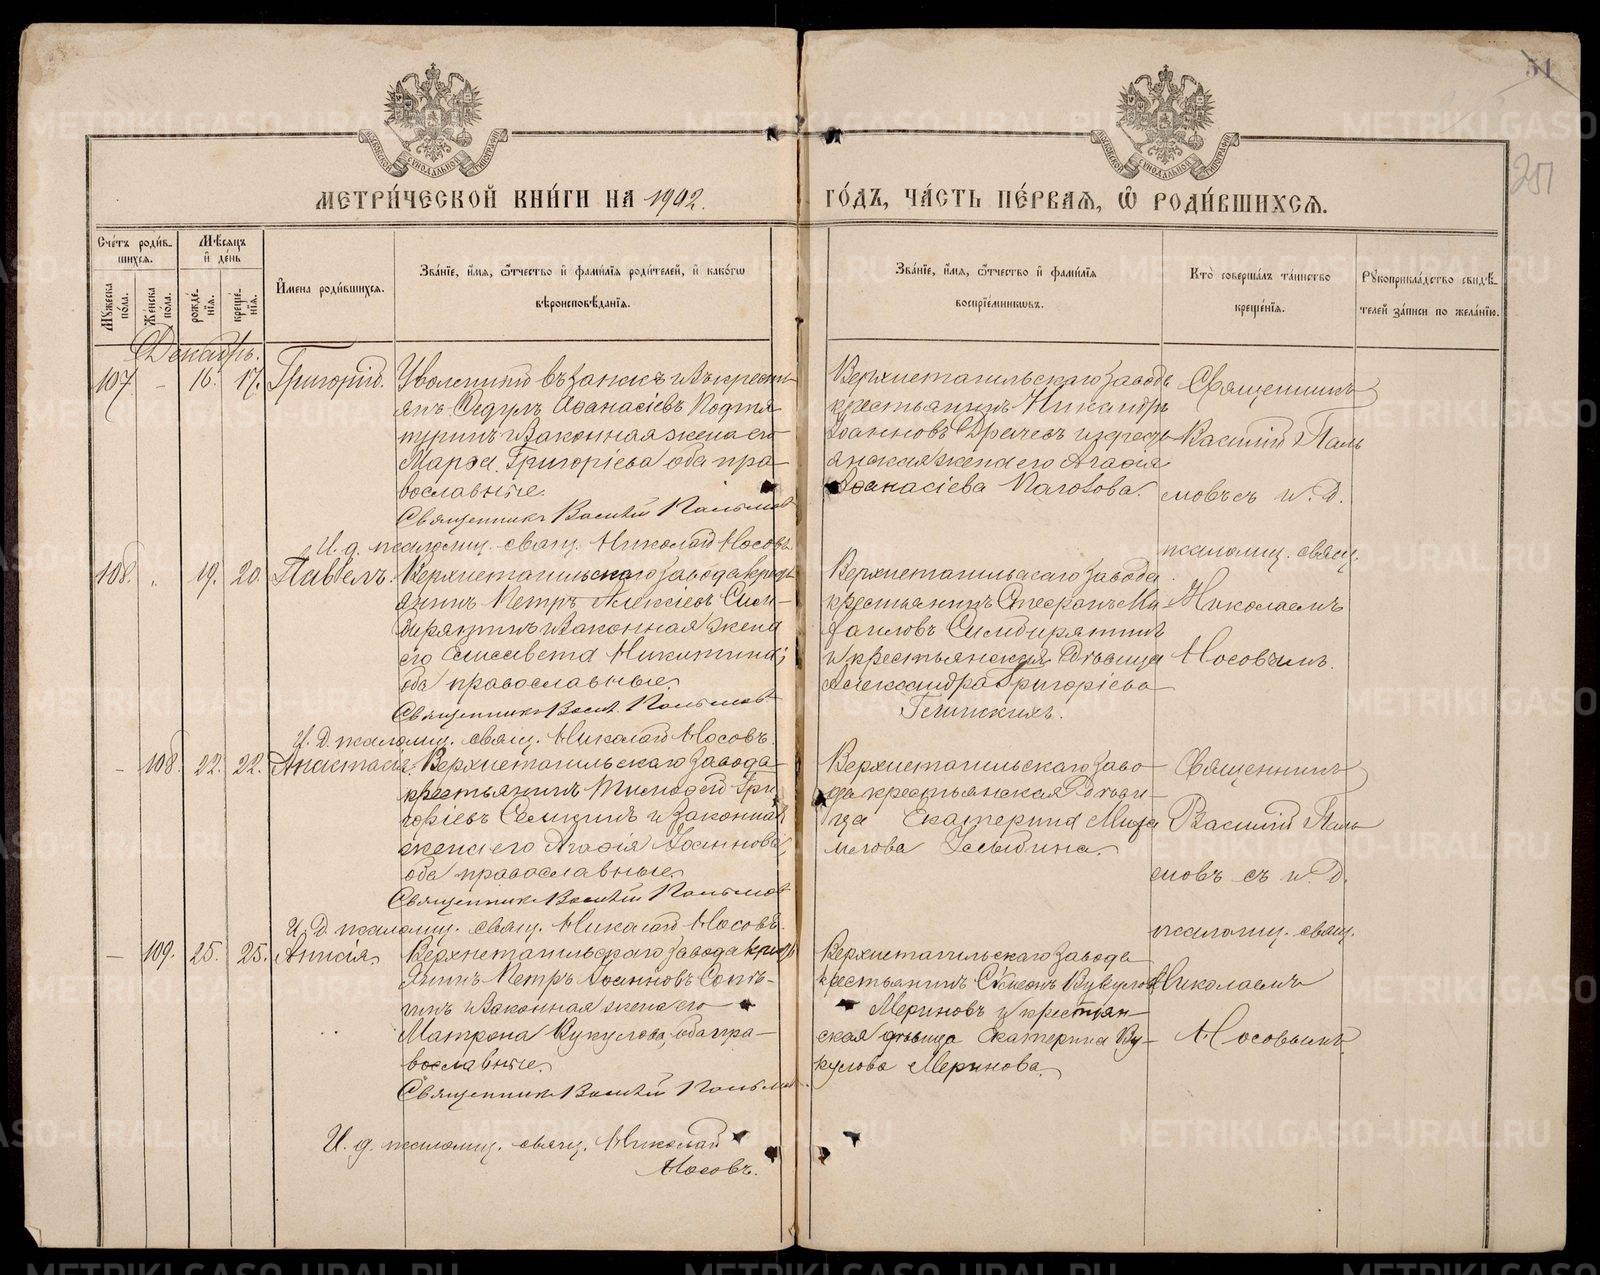 51
251
МЕТРИ́ЧЕСКОЙ КНИ́ГИ НА 1902. ГО́ДЪ, ЧА́СТЬ ПЕ́РВАЯ, Ѽ РОДИ́ВШИХСЯ.
Сче́тъ роди́в-
шихся.
Мꙋ́жеска пола.
Же́нска пола.
Мѣ́сяцъ
и҆ де́нь
рожде́-
нїя.
креще́-
нїя.
И҆мена роди́вшихся.
Зва́нїе, и҆́мя, ѻ҆́тчество и҆ фами́лїя роди́телей, и҆ како́гѡ
вѣроисповѣ́данїя.
Зва́нїе, и҆́мя, ѻ҆́тчество и҆ фами́лїя
воспрїе́мникѡвъ.
Кто̀ соверша́лъ та́инство
креще́нїя.
Рꙋкоприкла́дство свидѣ́-
телей за́писи по жела́нїю.
Декабрь.
107. – 16. 17. Григорій.
Уволенный въ запасъ изъ крестъ
янъ Ѳедулъ Аѳанасіевъ
и законная жена его
Марѳа Григорієва оба пра-
вославные.
Священникъ Василій Пальмовъ
И. д. псаломщ. свящ. Николай Носовъ.
Верхнетагильскаго завода
крестьянинъ Никандръ
Іоанновъ и кресть
янская жена его Агафія
Аѳанасіева
Священникъ
Василій Паль
мовъ съ и. д.
псаломщ. свящ.
Николаемъ
Носовымъ.
108. " 19. 20. Павелъ.
Верхнетагильскаго завода крестъ
янинъ Петръ Алексіевъ Сим-
бирятинъ и законная жена
его Елисавета Никитина;
оба православные.
Священникъ Васил. Пальмовъ
И. Д. псаломщ. свящ. Николай Носовъ.
Верхнетагильскаго завода
крестьянинъ Стефанъ Ми-
хаиловъ Симбирятинъ
и крестьянская дѣвица
Александра Григоріева
– 108. 22. 22. Анастасія.
Верхнетагильскаго завода
крестьянинъ Тимофей Гри
горіевъ и законная
жена его Агафія Іоаннова,
оба православные.
Священникъ Василій Пальмовъ
И. Д. псаломщ. свящ. Николай Носовъ.
Верхнетагильскаго заво-
да крестьянская дѣви-
ца Екатерина
Священникъ
Василій Паль
мовъ съ и. д.
псаломщ. свящ.
Николаемъ
Носовымъ.
– 109. 25. 25. Анисія.
Верхнетагильскаго завода крестъ
янинъ Петръ Іоанновъ
и законная жена его
Матрона Вукулова, оба пра-
вославные.
Священникъ Василій Пальмовъ.
И. д. псаломщ. свящ. Николай
Носовъ.
Верхнетагильскаго завода
крестьянинъ Симеонъ Вукуловъ
Мериновъ и крестьян-
ская дѣвица Екатерина Ву-
кулова Меринова.
METRIKI.GASO-URAL.RU